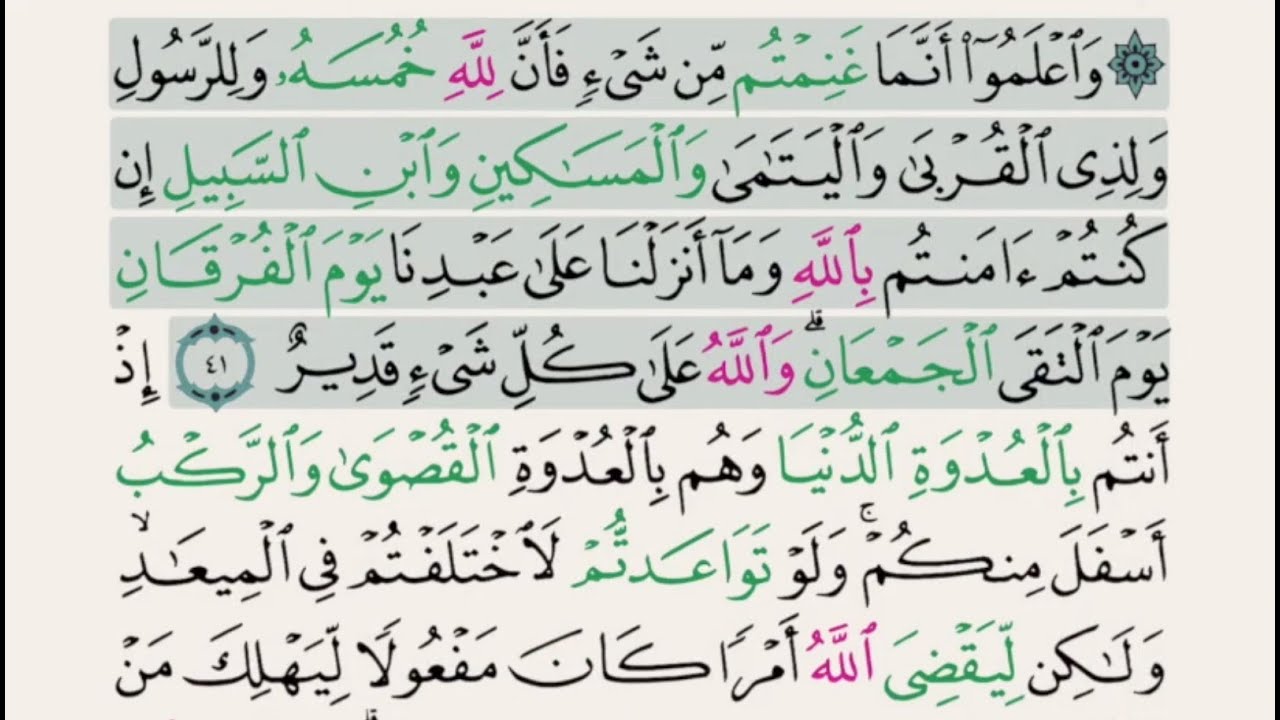 ۞ وَٱعۡلَمُوٓاْ أَنَّمَا غَنِمۡتُم مِّن شَيۡءٖ فَأَنَّ لِلَّهِ خُمُسَهُۥ وَلِلرَّسُولِ
وَلِذِي ٱلۡقُرۡبَىٰ وَٱلۡيَتَٰمَىٰ وَٱلۡمَسَٰكِينِ وَٱبۡنِ ٱلسَّبِيلِ إِن
كُنتُمۡ ءَامَنتُم بِٱللَّهِ وَمَآ أَنزَلۡنَا عَلَىٰ عَبۡدِنَا يَوۡمَ ٱلۡفُرۡقَانِ
يَوۡمَ ٱلۡتَقَى ٱلۡجَمۡعَانِۗ وَٱللَّهُ عَلَىٰ كُلِّ شَيۡءٖ قَدِيرٌ ٤١ إِذۡ
أَنتُم بِٱلۡعُدۡوَةِ ٱلدُّنۡيَا وَهُم بِٱلۡعُدۡوَةِ ٱلۡقُصۡوَىٰ وَٱلرَّكۡبُ
أَسۡفَلَ مِنكُمۡۚ وَلَوۡ تَوَاعَدتُّمۡ لَٱخۡتَلَفۡتُمۡ فِي ٱلۡمِيعَٰدِۙ
وَلَٰكِن لِّيَقۡضِيَ ٱللَّهُ أَمۡرٗا كَانَ مَفۡعُولٗا لِّيَهۡلِكَ مَنۡ